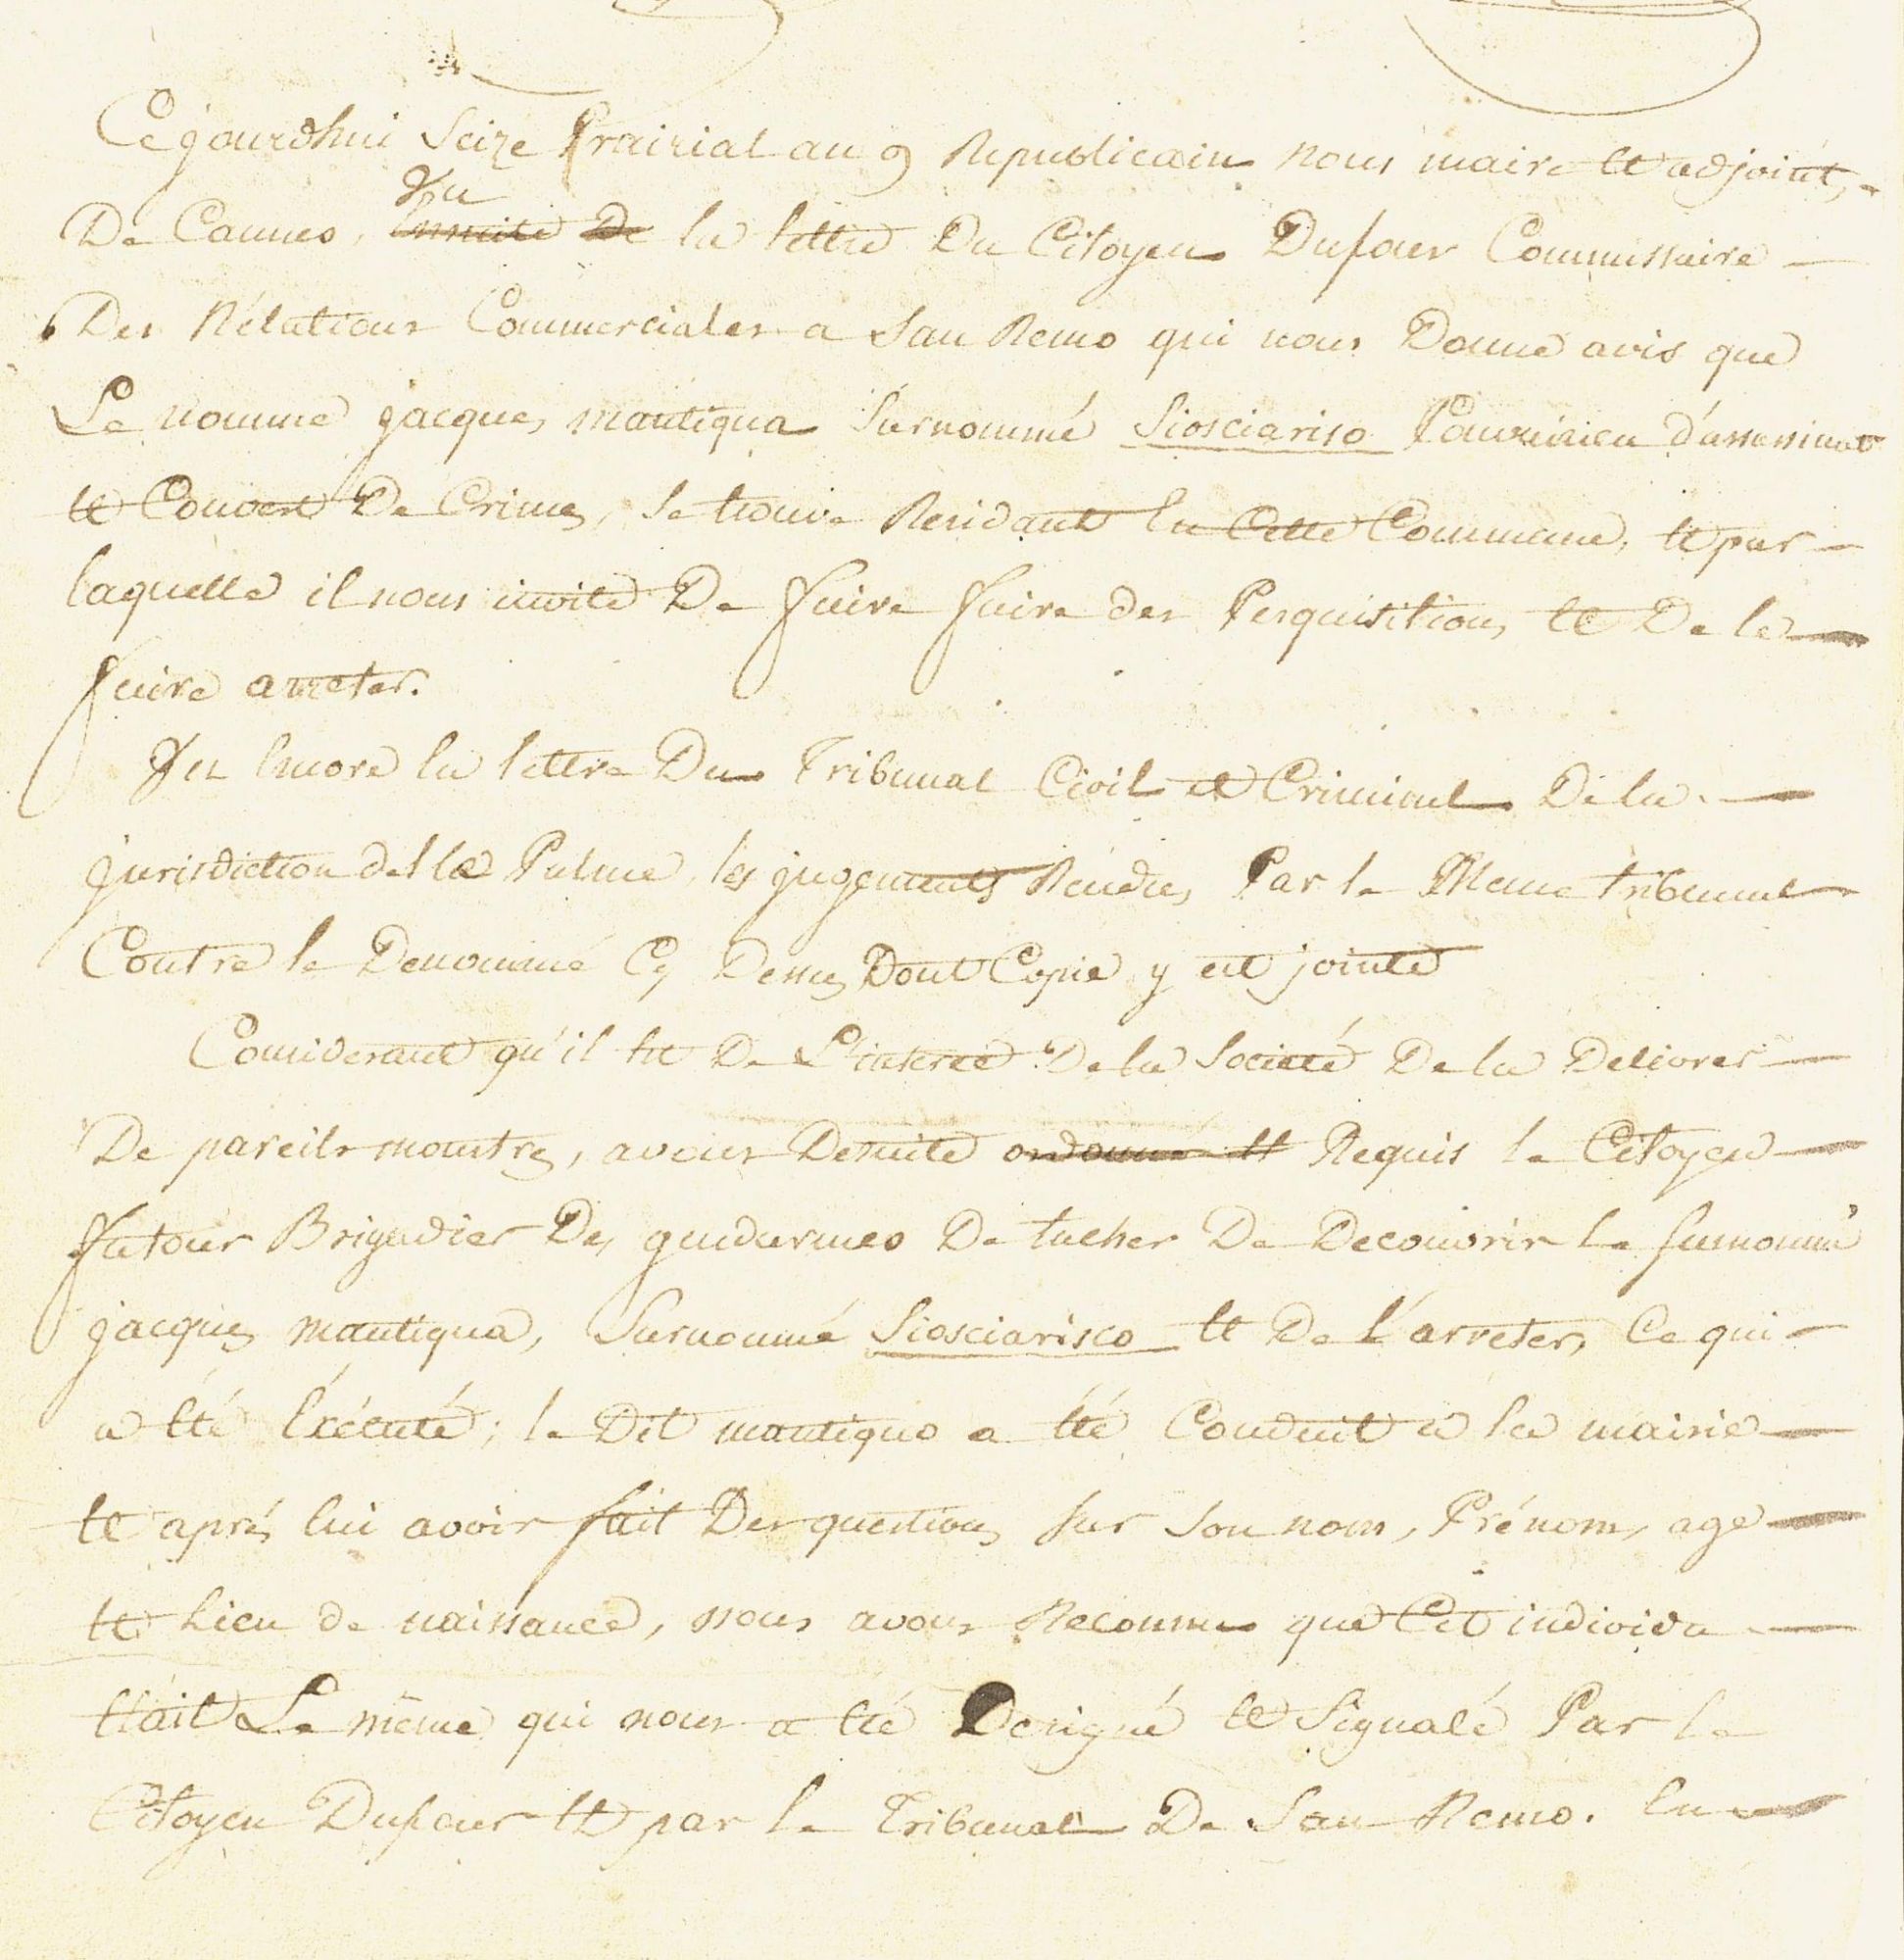 Cejourdhui Seize Prairial an 9 Republicain nous maire et adjoint,
Vu
De Cannes, Ensuite de la lettre Du Citoyen Dufour Commissaire
Des Rélations Commerciales a San Remo qui nous Donne avis que
Le nommé jacques mantiqua Surnommé Siosciariso Couvaincu d'assassinat
et Couvert De Crimes, se trouve Residant En Cette Commune, et par
laquelle il nous invite De faire faire des Perquisitions et De le
faire arreter.
Vu Encore la lettre Du Tribunal Civil et Criminel De la
jurisdiction della Palme, les jugements Rendus Par le Meme tribunal
Contre le Denommé Cy Dessus Dont Copie y est jointe
Considerant qu'il Est De L'interet De la Societé De la Delivrer
De pareils monstres, avons Desuite ordonné et Requis le Citoyen
Fatour Brigadier Des gendarmes De tacher De Decouvrir le susnommé
jacques mantiqua, Surnommé Siosciarisco et De l'arreter, Ce qui
a Eté Exécuté; le Dit mantiqua a Eté Conduit a la mairie
Et aprés lui avoir fait Des questions sur son nom, Prénom, age
et Lieu de naissance, nous avons Reconnu que Cet individu
Etait Le même qui nous a Eté Designé et Signalé Par le
Citoyen Dufour et par le Tribunal De San Remo. En